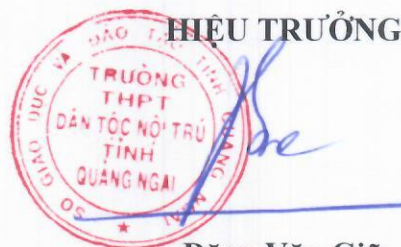 HIỆU TRƯỞNG
SỞ GIÁO DỤC VÀ ĐÀO TẠO TỈNH QUẢNG NGÃI
TRƯỜNG
THPT
DÂN TỘC NỘI TRÚ
TỈNH
QUẢNG NGÃI